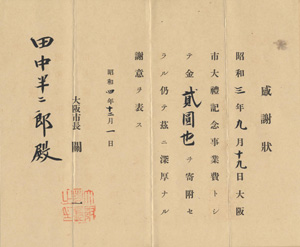 感謝狀
昭和三年九月十九日大阪
市大禮記念事業費トシ
テ金貳圓也ヲ寄附セ
ラル仍テ茲ニ深厚ナル
謝意ヲ表ス
昭和四年十二月一日
大阪市長 關 一
田中半二郎殿